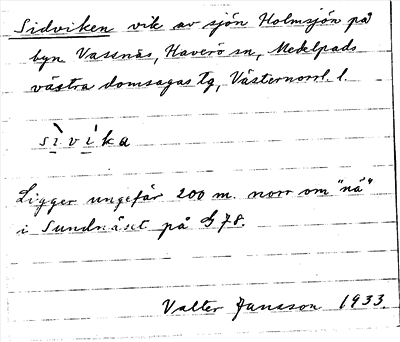 Sidviken vik av sjön Holmsjön på
byn Vassnäs, Haverö sn, Medelpads
västra domsagas tg, Västernorrl. l.
sìvíka
Ligger ungefär 200 m. norr om "nä"
i Sundnäset på G 78.
Valter Jansson 1933.